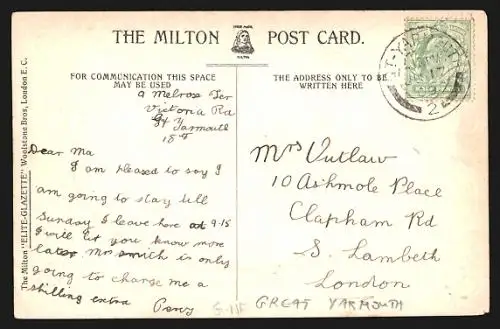 THE MILTON POST CARD.
FOR COMMUNICATION THIS SPACE
MAY BE USED
THE ADDRESS ONLY TO BE
WRITTEN HERE
The Milton "ELITE-GLAZETTE" Woolstone Bros, London E.C.
9 Melrose Ter
Victoria Rd
Gt Yarmouth
Dear Ma
I am pleased to say I
am going to stay till
Sunday I leave here at 9-15
I will let you know more
later Mrs Smith is only
going to charge me a
shilling extra
Percy
Mrs Outlaw
10 Ashmole Place
Clapham Rd
S. Lambeth
London
GREAT YARMOUTH